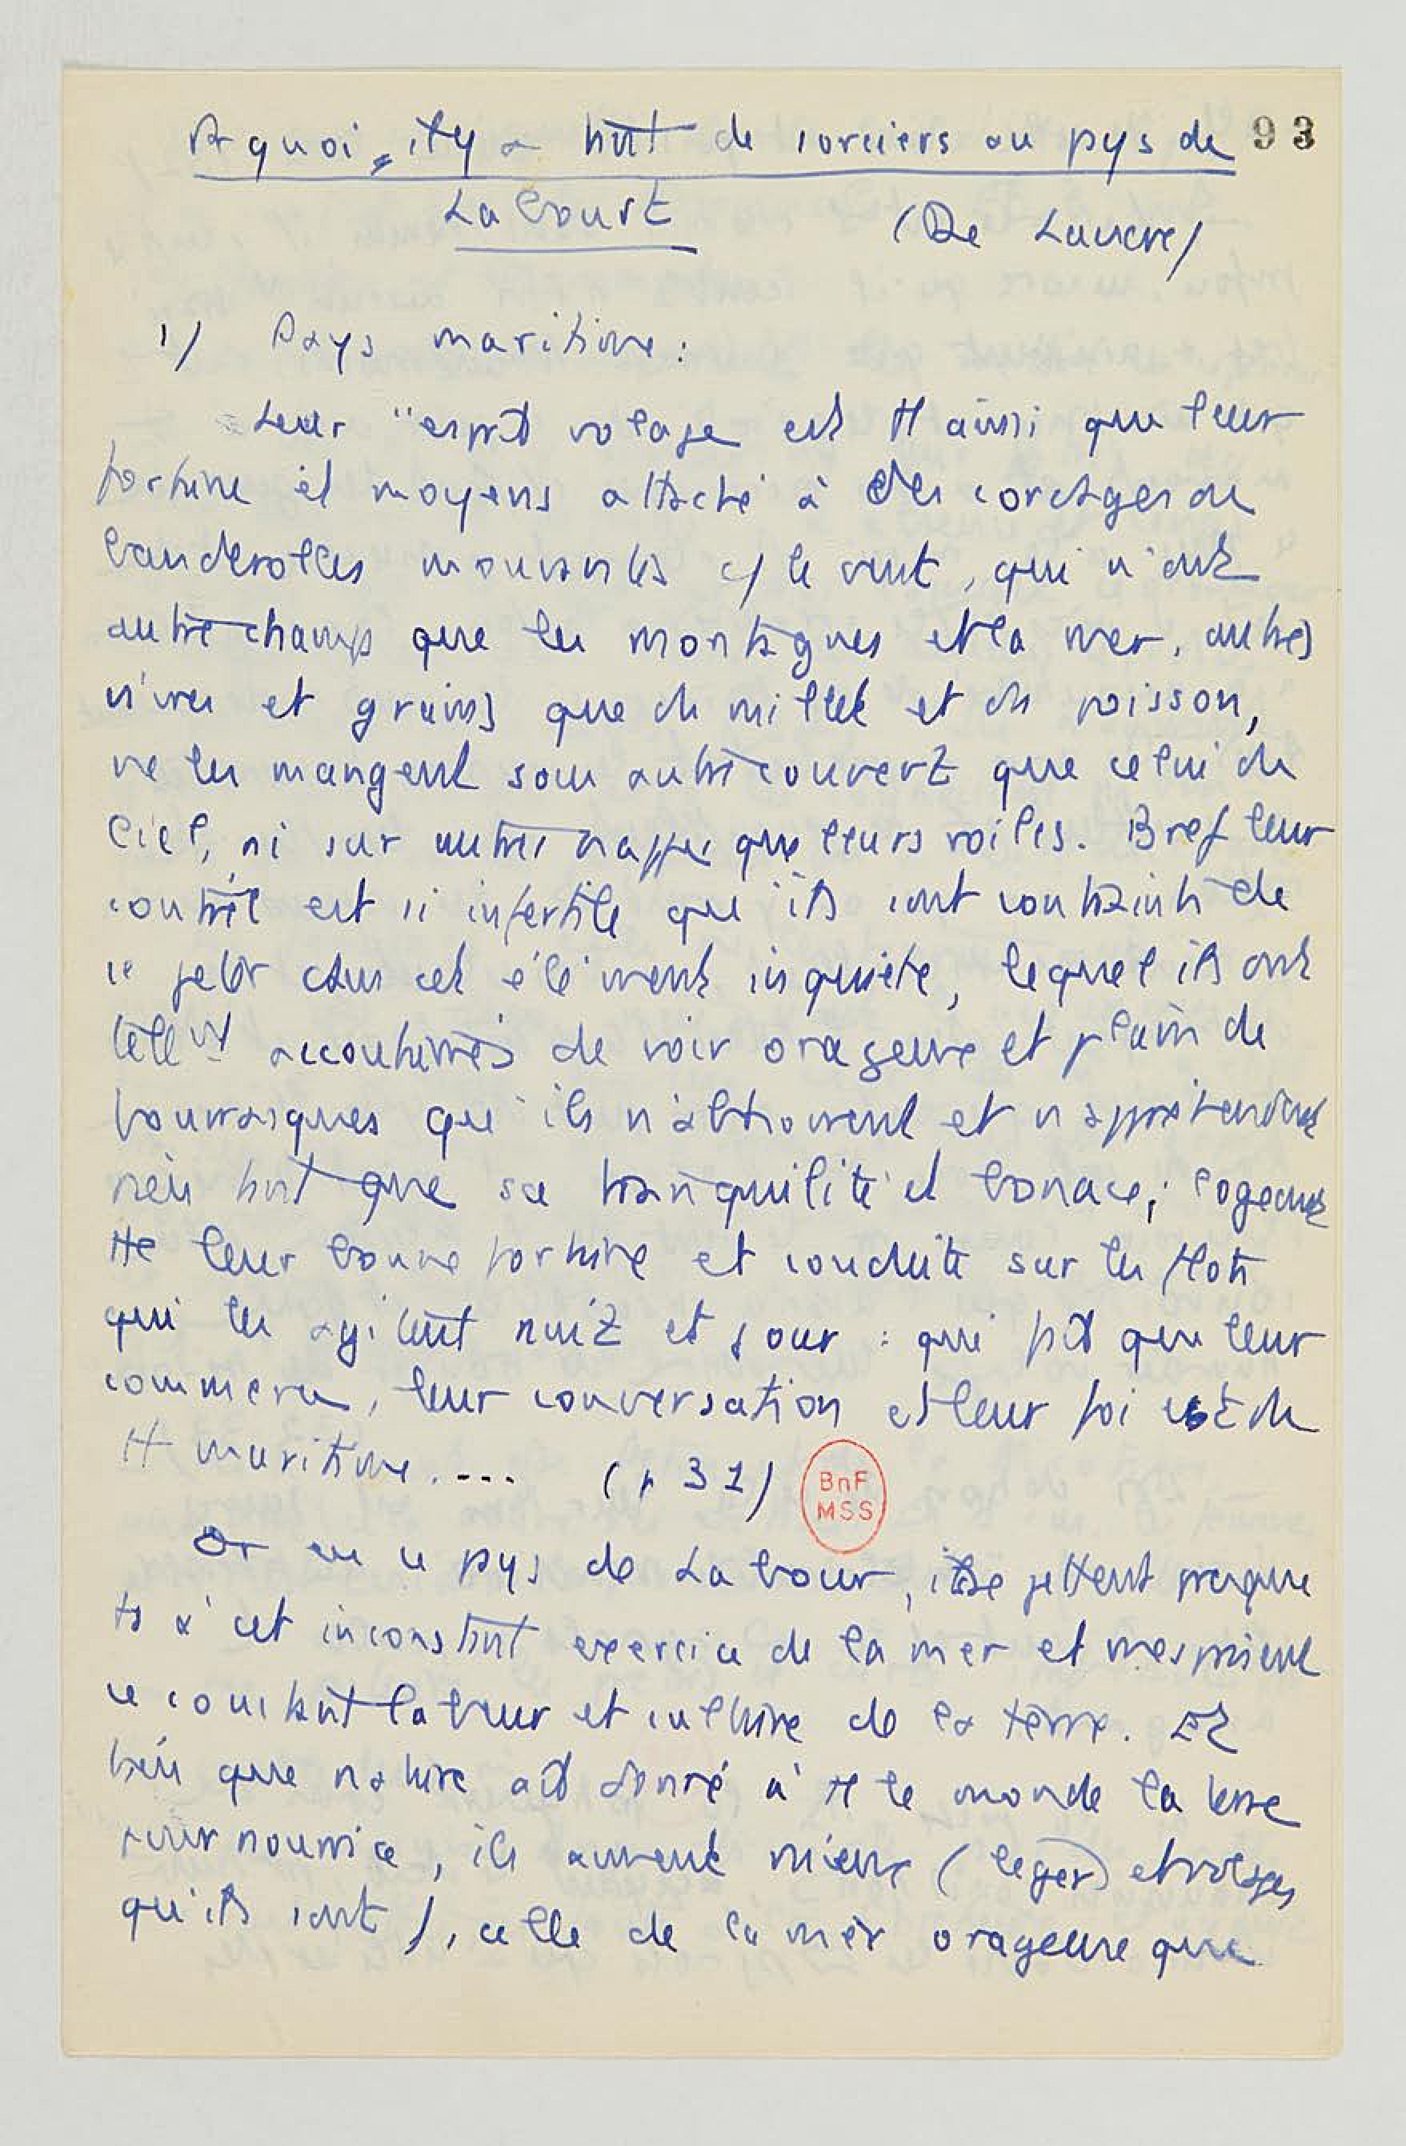 A quoi, il y a tant de sorciers au pays de 93
Labourt (De Lancre)
1/ Pays maritime :
Leur "esprit volage est tt ainsi que leur
fortune et moyens attaché à des cordages ou
banderolles mouvantes c/ le vent, qui n'ont
autre champs que les montagnes et la mer, autres
vivres et grains que du millet et du poisson,
ne les mangent sous autre couvert que celui du
Ciel, ni sur autres nappes que leurs voiles. Bref leur
contrée est si infertile que ils sont contraints de
se jeter dans cet élément inquiète, lequel ils ont
tellmt accoutumés de voir orageuse et plain de
bourrasques que ils n'abhorrent et n'appréhendent
rien tant que sa tranquilité et bonace ; logeant
tte leur bonne fortune et conduite sur les flots
qui les agitent nuit et jour : qui fait que leur
commerce, leur conversation et leur foi est du
tt maritime.... (p 31)
BnF
MSS
Or en ce pys de Labour, ils se jettent presque
ts à cet inconstant exercice de la mer et mesprisent
ce constant labeur et culture de la terre. Et
bien que nature ait donné à tt le monde la terre
pour nourrice, ils aiment mieux (legers et volages
qu'ils sont), celle de la mer orageuse que